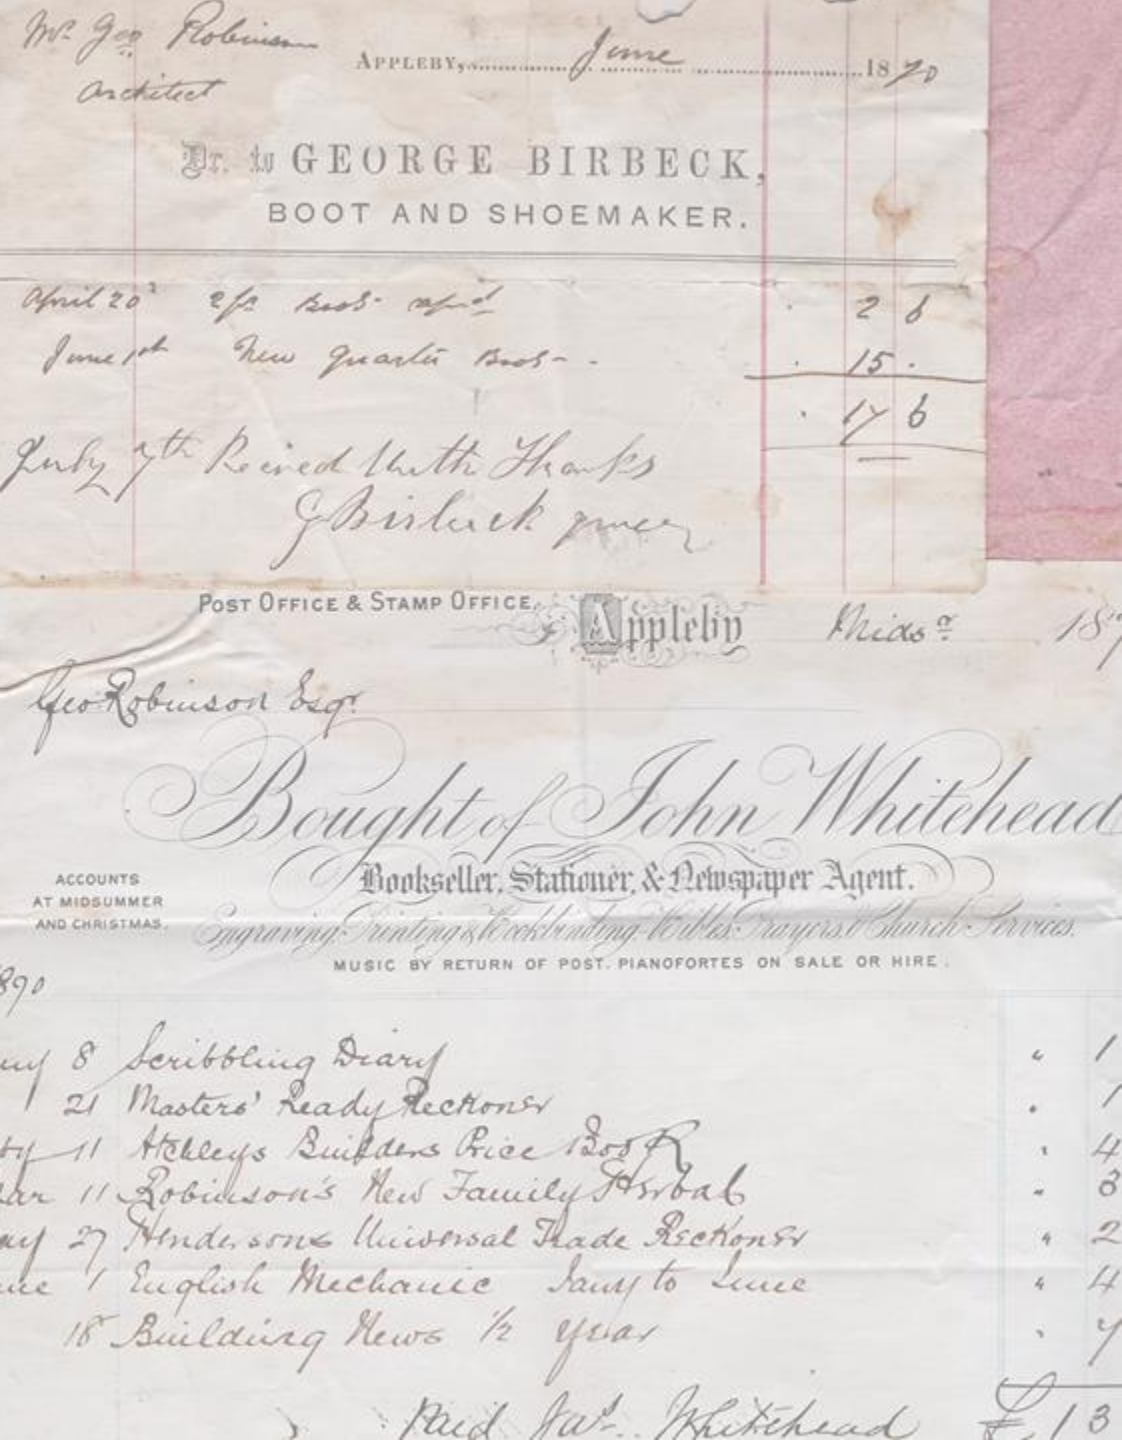 Mr Geo Robinson
Architect
APPLEBY, June 1870
Dr. to GEORGE BIRBECK,
BOOT AND SHOEMAKER.
April 20 2 pr Boots 2 6
June 1st New quarter Boots 15
17 6
July 7th Received With Thanks
G Birbeck
POST OFFICE & STAMP OFFICE, Appleby Midsr 187
Geo Robinson Esqr.
Bought of John Whitehead
Bookseller, Stationer, & Newspaper Agent.
ACCOUNTS
AT MIDSUMMER
AND CHRISTMAS.
Engraving, Printing & Bookbinding. Bibles, Prayers, & Church Services.
MUSIC BY RETURN OF POST. PIANOFORTES ON SALE OR HIRE.
890
8 Scribbling Diary " 1
21 Masters' Ready Reckoner " 1
11 Atchleys Builders Price Book " 4
ar 11 Robinson's New Family Herbal " 3
ay 27 Hendersons Universal Trade Reckoner " 2
une 1 English Mechanic Jany to June " 4
18 Building News 1/2 year " 7
Paid Whitehead £ 13